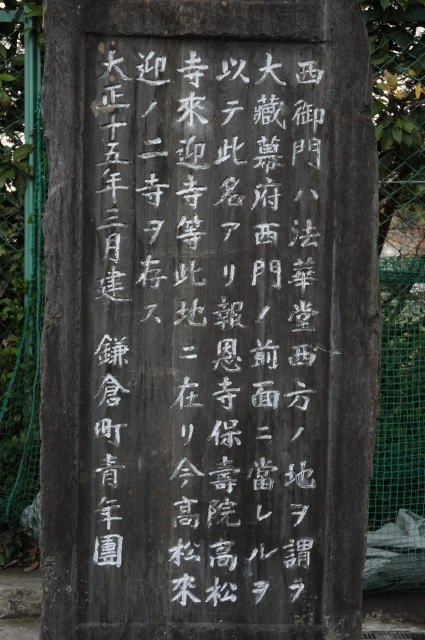 西御門ハ法華堂西方ノ地ヲ謂ヲ
大藏幕府西門ノ前面ニ當レルヲ
以テ此名アリ報恩寺保壽院高松
寺來迎寺等此地ニ在リ今高松來
迎ノ二寺ヲ存ス
大正十五年三月建 鎌倉町青年團